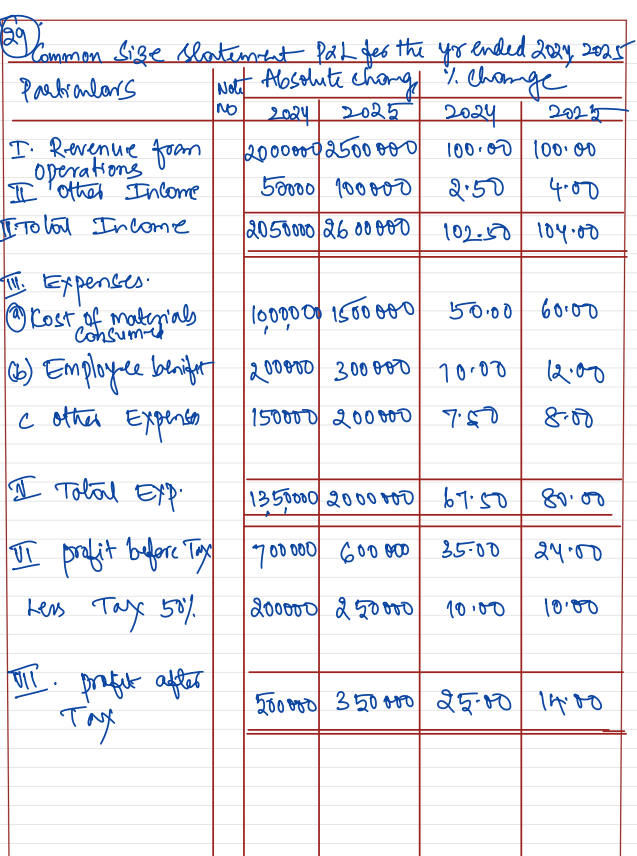 29
Common Size Statement P&L for the yr ended 2024, 2025
Particulars Note No Absolute change % Change
2024 2025 2024 2025
I. Revenue from operations 2000000 2500000 100.00 100.00
II other Income 50000 100000 2.50 4.00
II Total Income 2050000 2600000 102.50 104.00
III. Expenses.
(a) Cost of materials consumed 1,000,000 1500000 50.00 60.00
(b) Employee benifit 200000 300000 10.00 12.00
c other Expenses 150000 200000 7.50 8.00
IV Total Exp. 1350000 2000000 67.50 80.00
VI profit before Tax 700000 600000 35.00 24.00
Less Tax 50% 200000 250000 10.00 10.00
VII. profit after Tax 500000 350000 25.00 14.00